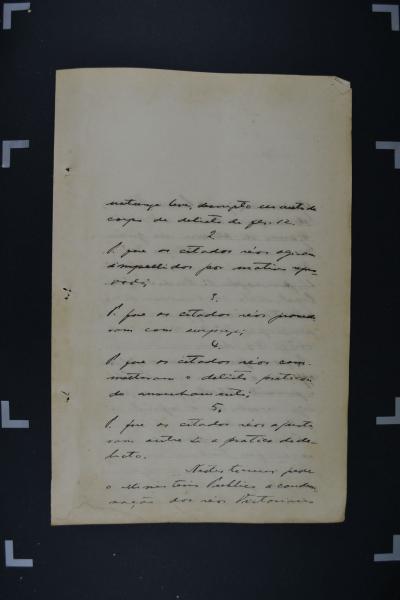 natureza leve, descripto no auto de
corpo de delicto de fls. 12.
2
P. que os citados réos agiram
impellidos por motivo repro
vado;
3.
P. que os citados réos proce
ram com surpresa;
4.
P. que os citados réos com-
metteram o delicto
do ;
5.
P. que os citados réos ajusta
ram entre si a pratica do de-
licto.
Nestes termos pede
o Ministerio Publico a condem
nação dos réos Victoriano